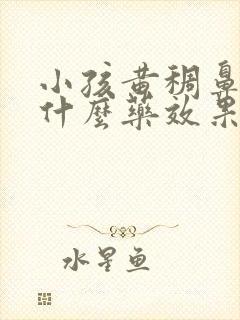 小孩黄稠鼻
什麼藥效果
水星鱼